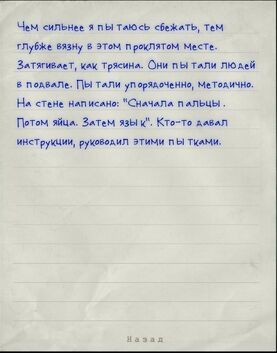 Чем сильнее я пытаюсь сбежать, тем
глубже вязну в этом проклятом месте.
Затягивает, как трясина. Они пытали людей
в подвале. Пытали упорядоченно, методично.
На стене написано: "Сначала пальцы.
Потом яйца. Затем язык". Кто-то давал
инструкции, руководил этими пытками.
Назад